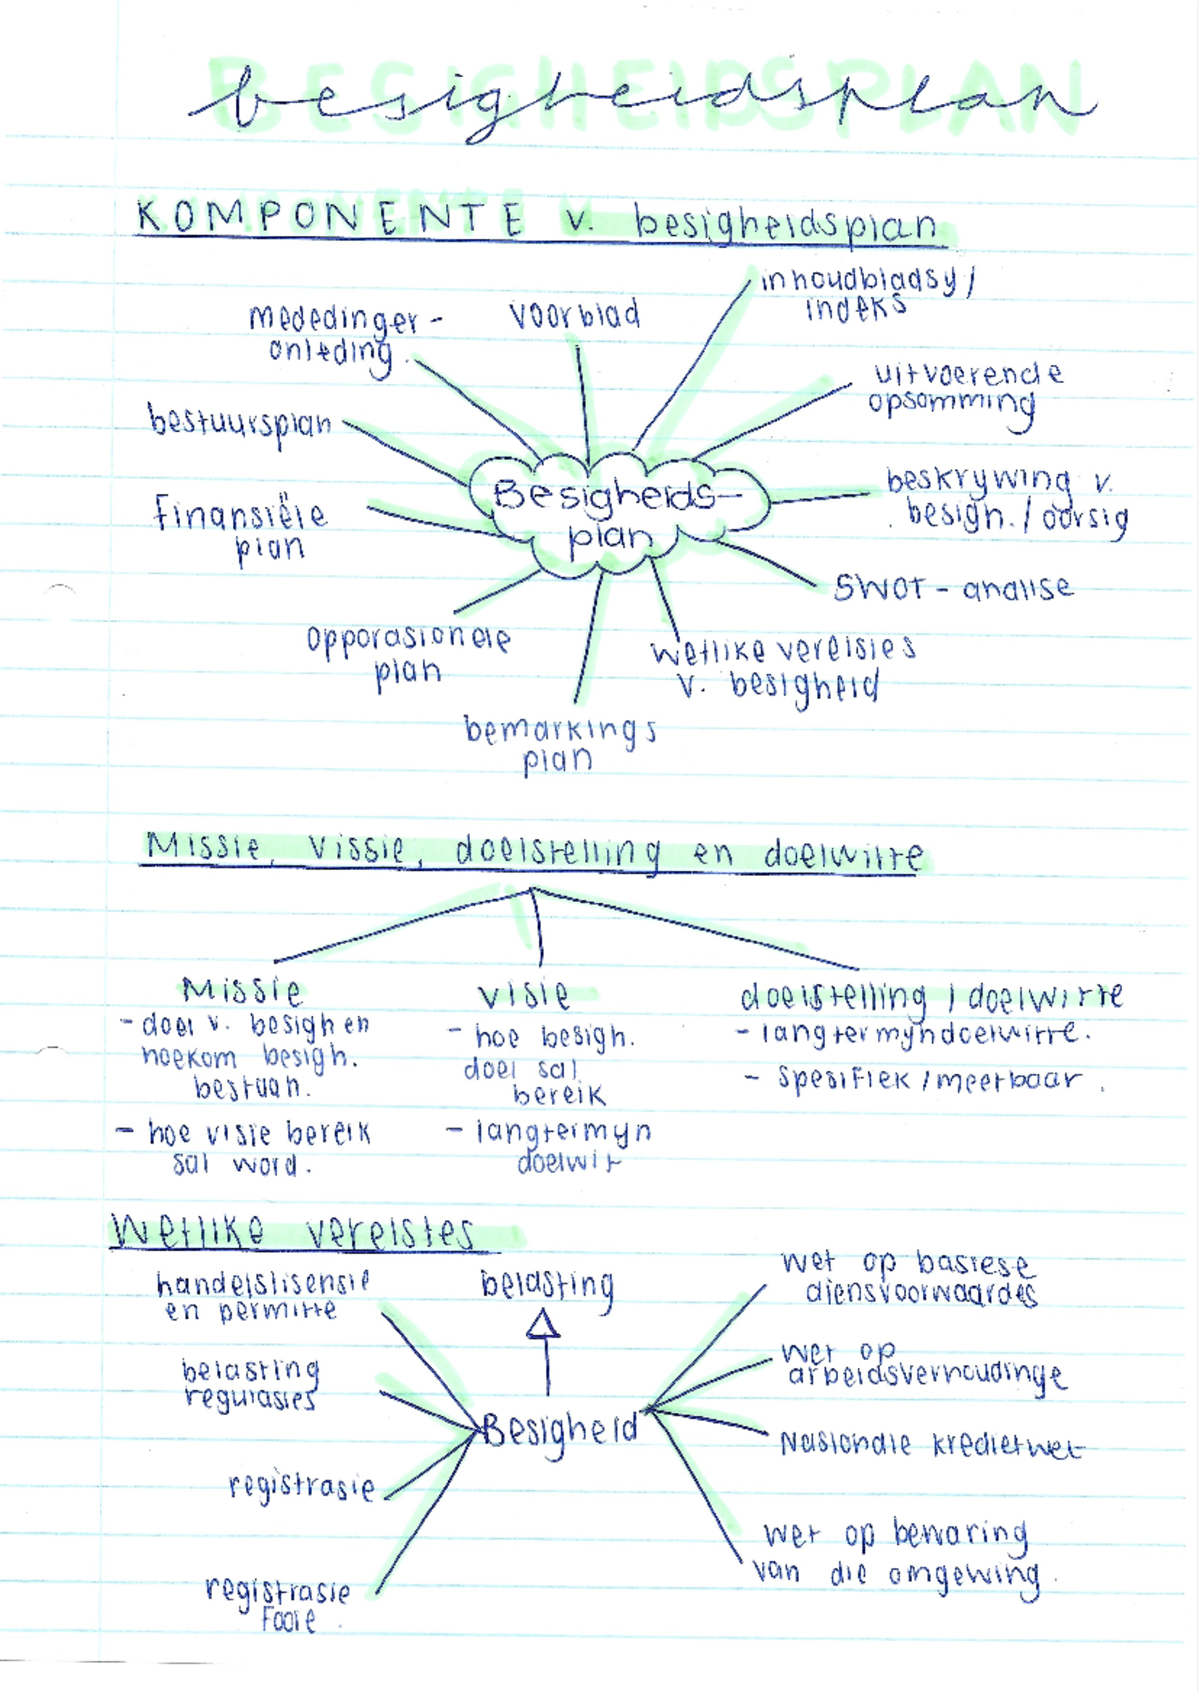 BESIGHEIDSPLAN
besigheidsplan
KOMPONENTE v. besigheidsplan
inhoudbladsy /
indeks
voorblad
mededinger -
onleding
uitvoerende
opsomming
bestuursplan
beskrywing v.
besigh. / oorsig
Finansiële
plan
Besigheids-
plan
SWOT - analise
opporasionele
plan
wetlike vereistes
v. besigheid
bemarkings
plan
Missie, vissie, doelstelling en doelwitte
Missie
- doel v. besigh en
hoekom besigh.
bestaan.
- hoe visie bereik
sal word.
visie
- hoe besigh.
doel sal
bereik
- langtermyn
doelwit
doelstelling / doelwitte
- langtermyndoelwitte.
- spesifiek / meetbaar.
Wetlike vereistes
handelslisensie
en permitte
belasting
wet op basiese
diensvoorwaardes
belasting
regulasies
wet op
arbeidsverhoudinge
Besigheid
Nasionale kredietwet
registrasie
wet op bewaring
van die omgewing.
registrasie
Fooie.